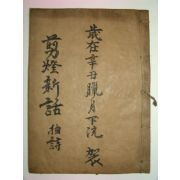 歲在辛丑臘月下浣 製
剪燈新話